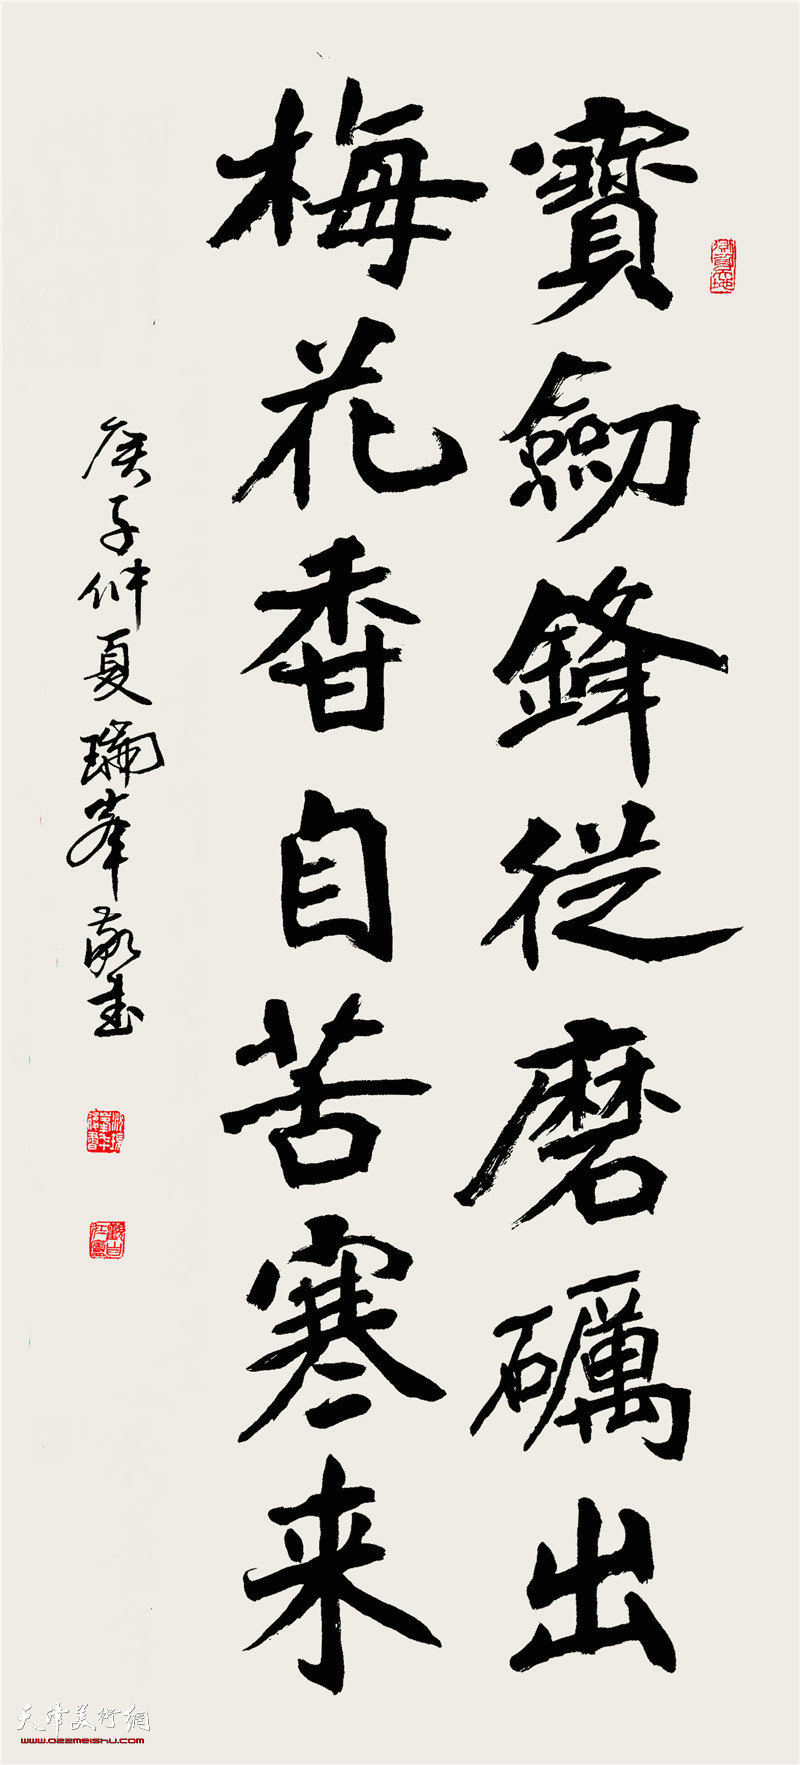 寳劒鋒從磨礪出
梅花香自苦寒来
庚子仲夏瑞峯敬书
天津美術網
www.022meishu.com